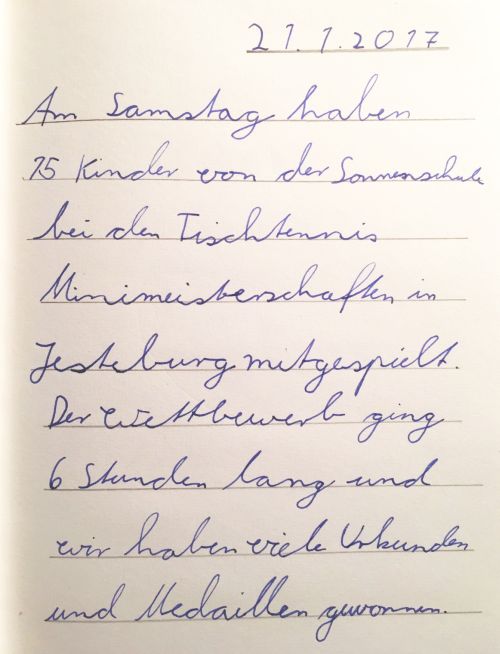 21.1.2017
Am Samstag haben
15 Kinder von der Sonnenschule
bei den Tischtennis
Minimeisterschaften in
Jesteburg mitgespielt.
Der Wettbewerb ging
6 Stunden lang und
wir haben viele Urkunden
und Medaillen gewonnen.